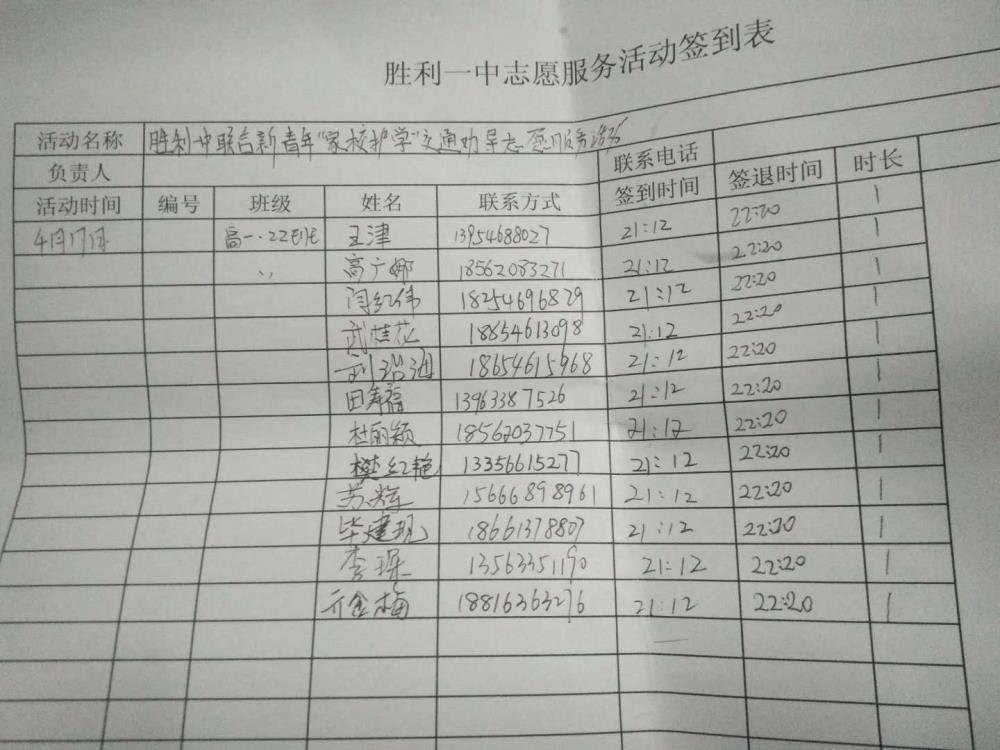 胜利一中志愿服务活动签到表
活动名称 胜利一中联合新青年“家校护学”交通劝导志愿服务活动
负责人 联系电话
活动时间 编号 班级 姓名 联系方式 签到时间 签退时间 时长
4月17日 高一.22班 王津 13954688027 21:12 22:20 1
〃 高广娜 18562083271 21:12 22:20 1
闫红伟 18254696829 21:12 22:20 1
武桂花 18654613098 21:12 22:20 1
18654615968 21:12 22:20 1
田寿福 13963387526 21:12 22:20 1
杜丽颖 18562037751 21:12 22:20 1
樊红艳 13356615277 21:12 22:20 1
苏辉 15666898961 21:12 22:20 1
毕建现 18661378807 21:12 22:20 1
李琛 13563351190 21:12 22:20 1
亓金梅 18816363276 21:12 22:20 1